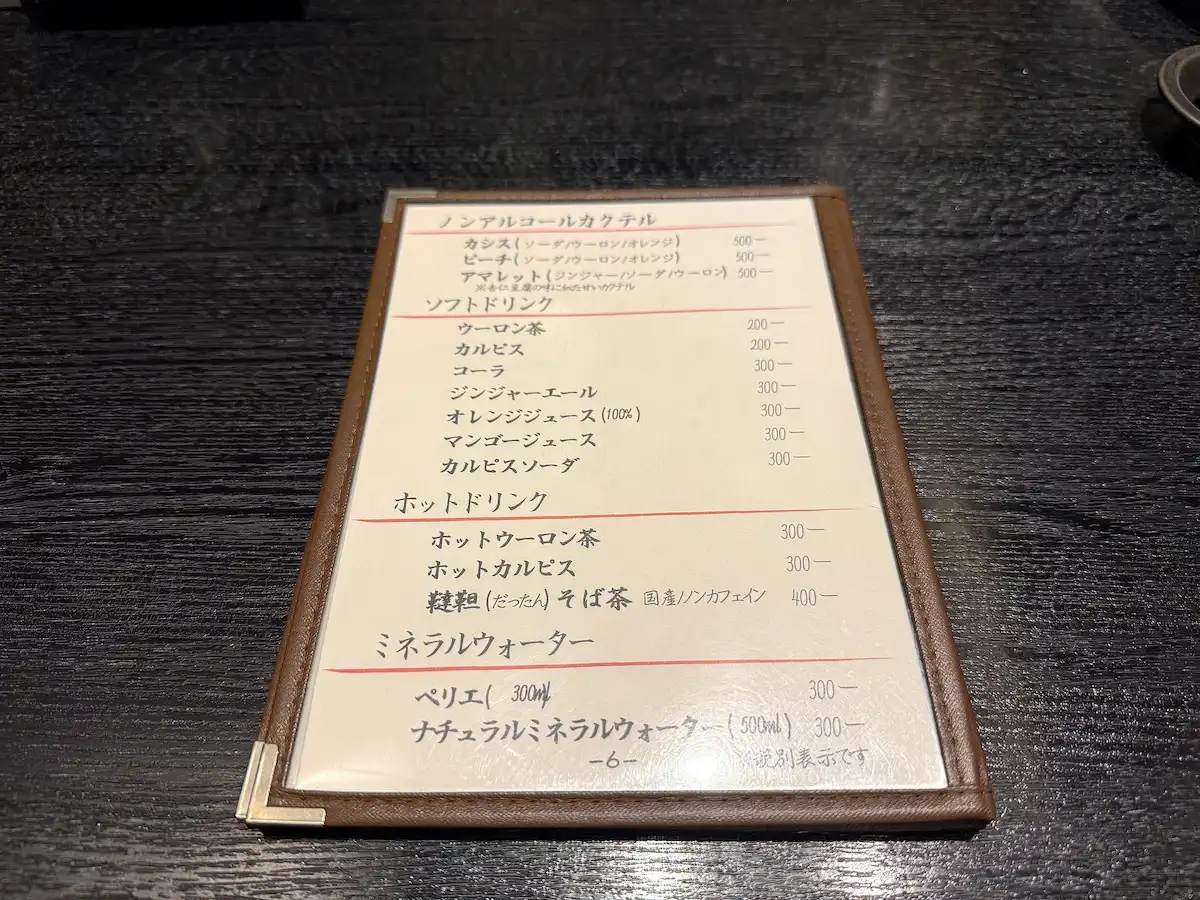 ノンアルコールカクテル
カシス(ソーダ/ウーロン/オレンジ) 500―
ピーチ(ソーダ/ウーロン/オレンジ) 500―
アマレット(ジンジャー/ソーダ/ウーロン) 500―
※杏仁豆腐の味に似たカクテル
ソフトドリンク
ウーロン茶 200―
カルピス 200―
コーラ 300―
ジンジャーエール 300―
オレンジジュース(100%) 300―
マンゴージュース 300―
カルピスソーダ 300―
ホットドリンク
ホットウーロン茶 300―
ホットカルピス 300―
韃靼(だったん)そば茶 国産/ノンカフェイン 400―
ミネラルウォーター
ペリエ( 300ml 300―
ナチュラルミネラルウォーター(500ml) 300―
―6―
※税別表示です